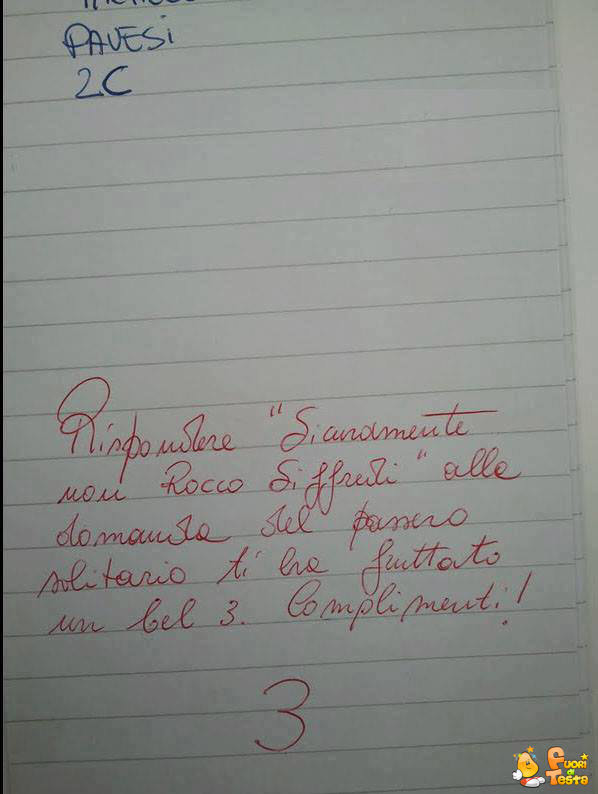 PAVESi
2C
Rispondere "Sicuramente
non Rocco Siffredi" alla
domanda del passero
solitario ti ha fruttato
un bel 3. Complimenti!
3
FUORi
di
TesTa